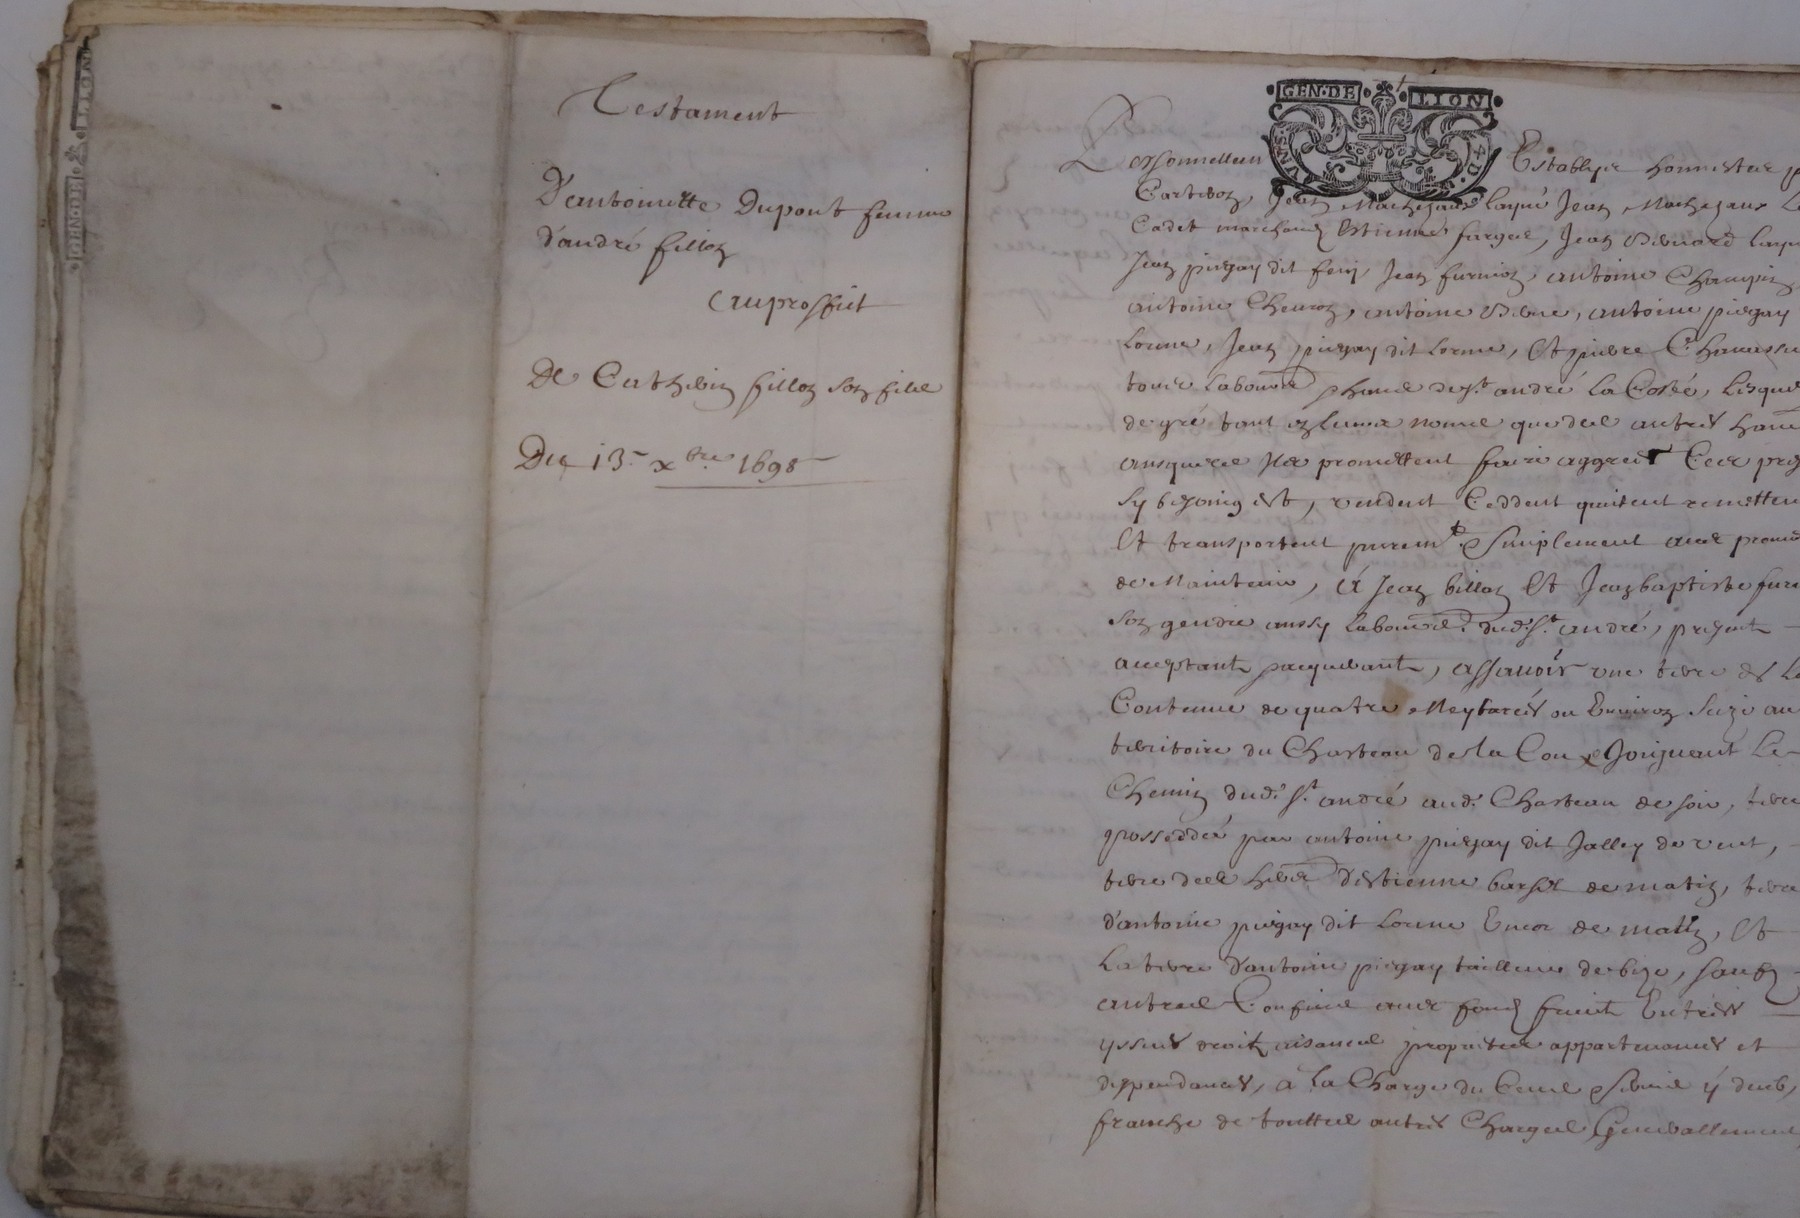 GEN·DE LION
Testament
D'antoinette Dupont femme
D'andré fillon
au proffit
De Catherin fillon son filz
Du 13e xbre 1698
GEN·DE LION
Personnellem Establys honnestes
Jean laysné Jean
Cadet marchand Estienne farges, Jean laysn
Jean piegay dit Jean furnion, antoine
antoine antoine antoine piegay
lorme, Jean piegay dit lorme, Et pierre
tous labour de St andré la Coste, lesquels
de gré tant en leurs noms que des autres
ausquels Ilz promettent faire aggreer Ces
sy besoing est, vendent Ceddent quitent remettent
Et transportent purem.t & simplement avec
de Maintenir, A Jean billon Et Jean baptiste
son gendre aussy dud. St andré, present
acceptant assavoir une terre
Contenue de quatre Meyterées ou Environ size au
territoire du Chasteau de la Joignant Le
Chemin dud. St andré aud. Chasteau de soir, terre
possedée par antoine piegay dit Jalley de vent,
terre des D'estienne de matin, terre
d'antoine piegay dit Lorme Encor de matin, Et
La terre d'antoine piegay tailleur de bize, saufz
autres Confins avec fond fruit Entrées
yssues droitz aisances proprietes appartenances et
deppendances, à la Charge du Cens & servis y deub,
franche de touttes autres Charges Generallement